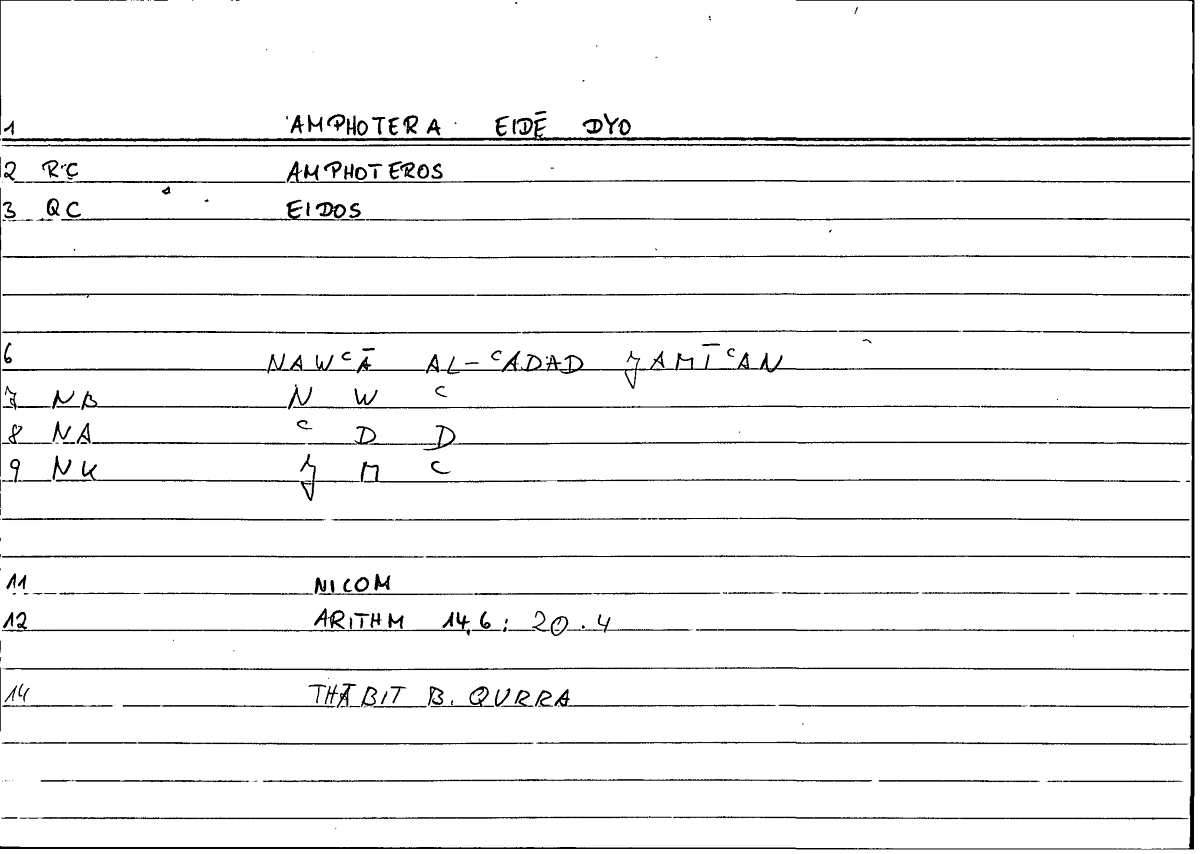 1 AMPHOTERA EIDĒ DYO
2 RC AMPHOTEROS
3 QC EIDOS
6 NAWCĀ AL-CADAD JAMĪCAN
7 NB N W C
8 NA C D D
9 NK J M C
11 NICOM
12 ARITHM 14,6: 20.4
14 THĀBIT B. QURRA